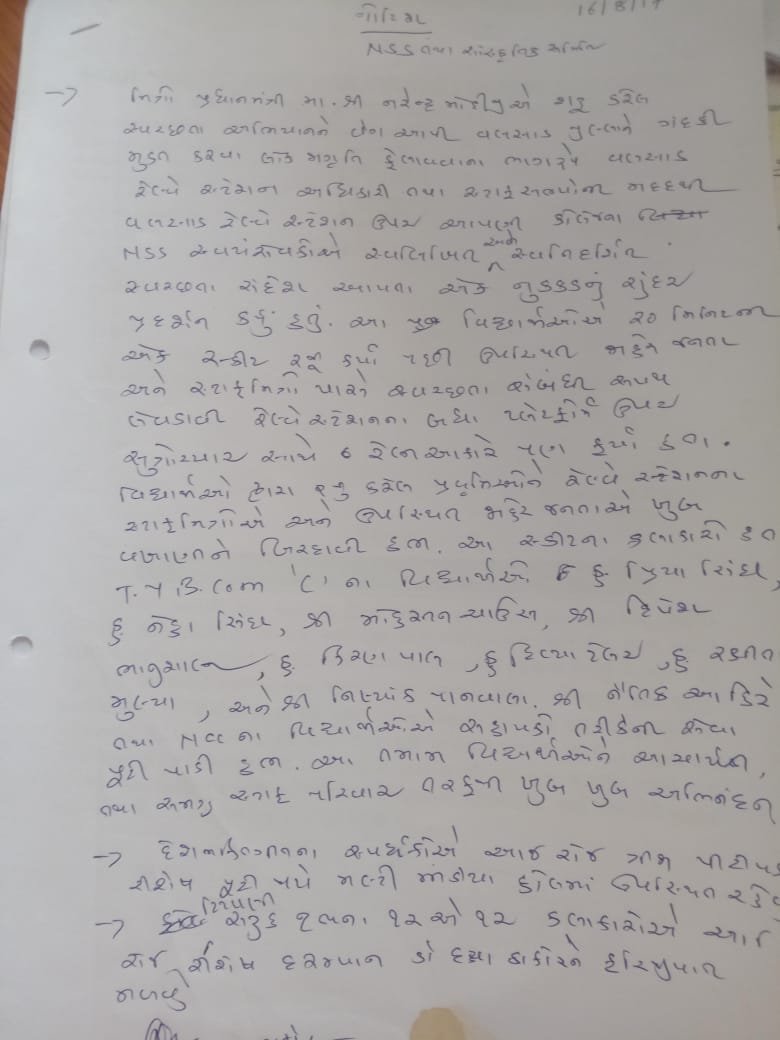 નોટિસ
16/8/19
NSS તથા સાંસ્કૃતિક
→ પ્રધાનમંત્રી મા. શ્રી નરેન્દ્ર મોદીજીએ શરૂ કરેલ
સ્વચ્છતા અભિયાનને વેગ આપી વલસાડ જીલ્લાને ગંદકી
મુક્ત કરવા લોક જાગૃતિ ફેલાવવાના ભાગરૂપે વલસાડ
રેલ્વે સ્ટેશન અધિકારી તથા સ્ટાફ મદદથી
વલસાડ રેલ્વે સ્ટેશન ઉપર આપણી કોલેજના
NSS સ્વયંસેવકોએ સ્વલિખિત અને સ્વનિર્દેશિત
સ્વચ્છતા સંદેશ આપતા એક નુક્કડનું સુંદર
પ્રદર્શન કર્યું હતું. આ વિદ્યાર્થીઓએ ૨૦ મિનિટના
એક સ્કીટ રજૂ કર્યા પછી ઉપસ્થિત જાહેર જનતા
અને સ્ટાફમિત્રો પાસે સ્વચ્છતા સંબંધી શપથ
લેવડાવી રેલ્વે સ્ટેશનના બધા પ્લેટફોર્મ ઉપર
સુત્રોચ્ચાર સાથે રેલી આકારે પુર્ણ કર્યા હતા.
વિદ્યાર્થીઓ દ્વારા રજુ કરેલ પ્રવૃત્તિઓને રેલ્વે સ્ટેશનના
સ્ટાફમિત્રોએ અને ઉપસ્થિત જાહેર જનતાએ ખુબ
વખાણીને બિરદાવી હતી. આ સ્કીટના કલાકારો હતા
T.Y B.Com 'C' ના વિદ્યાર્થીઓ કુ પ્રિયા સિંઘ,
કુ નેહા સિંઘ, શ્રી શ્રી દિપેશ
ભાનુશાલી, કુ કિરણ પાલ, કુ દિવ્યા ટેલર, કુ
અને શ્રી પાનવાલા. શ્રી નૈતિક આહિરે
તથા NCC ના વિદ્યાર્થીઓએ સહાયકો તરીકેની સેવા
પૂરી પાડી હતી. આ તમામ વિદ્યાર્થીઓને આચાર્યશ્રી,
તથા સમગ્ર સ્ટાફ પરિવાર તરફથી ખુબ ખુબ અભિનંદન
→ દેશભક્તિગીતના સ્પર્ધકોએ આજ રોજ
રીશેષ પૂરી થયે મલ્ટી મીડીયા હોલમાં ઉપસ્થિત રહેવું
→ ૧૨ એ ૧૨ કલાકારોએ આજ
રોજ રીશેષ દરમ્યાન ડો ઠાકોરને ફરજિયાત
મળવું